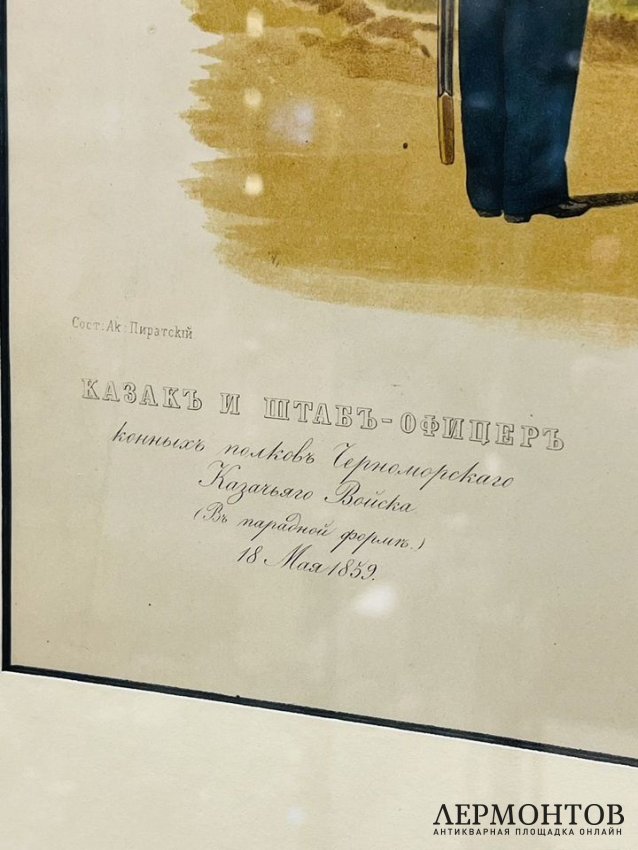 Сост: Ак: Пиратскій
КАЗАКЪ И ШТАБЪ-ОФИЦЕРЪ
конныхъ полковъ Черноморскаго
Казачьяго Войска
(Въ парадной формѣ.)
18 Мая 1859.
ЛЕРМОНТОВ
АНТИКВАРНАЯ ПЛОЩАДКА ОНЛАЙН